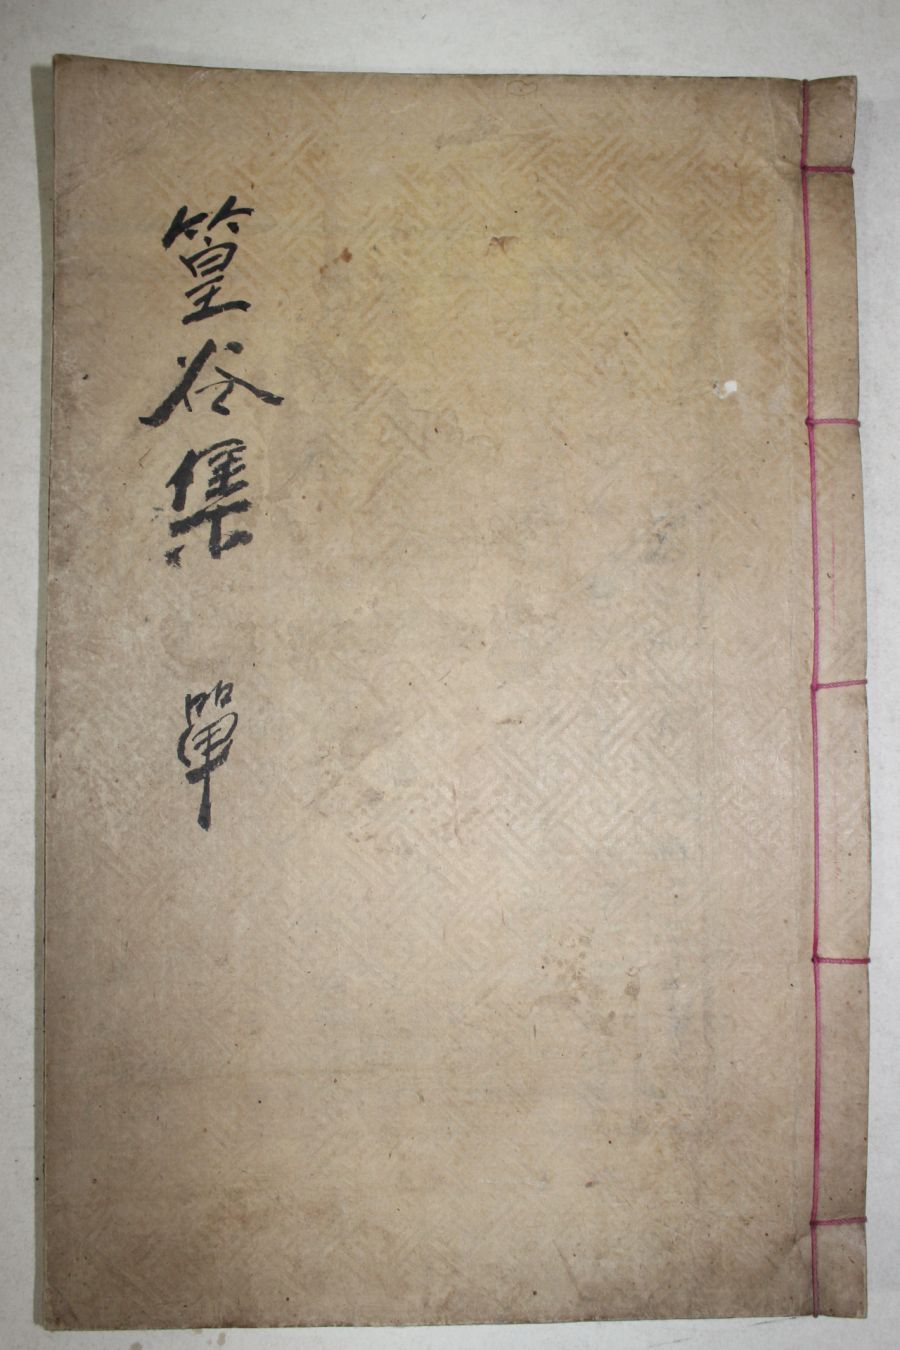 篁谷集 單